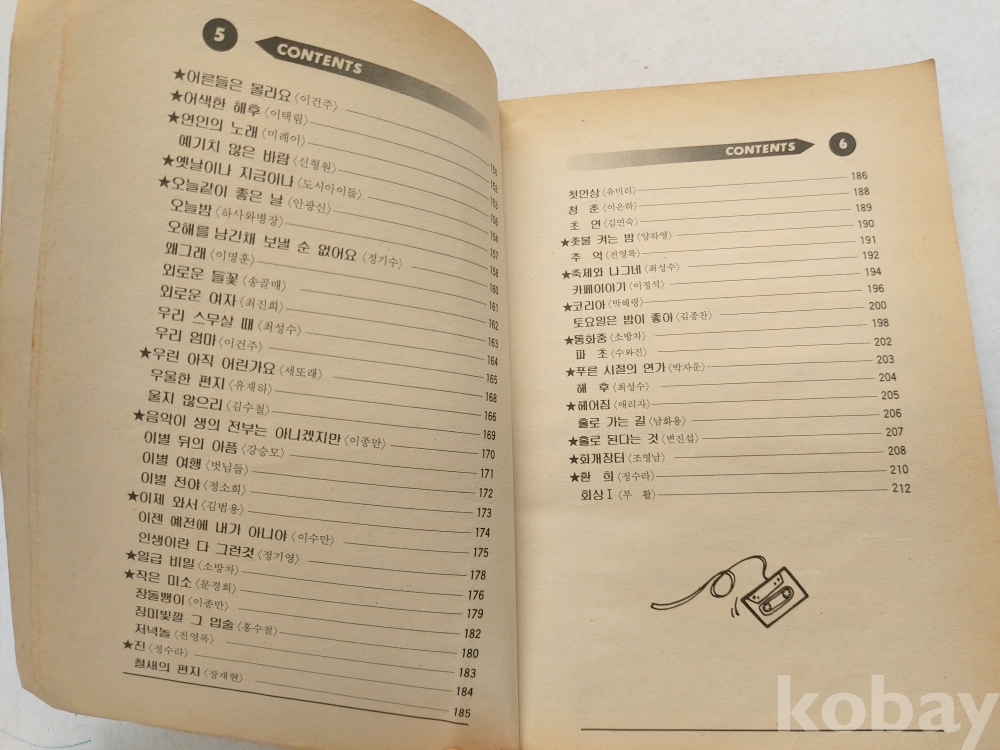 5 CONTENTS
★어른들은 몰라요〈이건주〉 150
★어색한 해후〈이택림〉 152
★연인의 노래〈미레이〉 153
예기치 않은 바람〈신형원〉 156
★옛날이나 지금이나〈도시아이들〉 154
★오늘같이 좋은 날〈안광신〉 157
오늘밤〈하사와병장〉 158
오해를 남긴채 보낼 순 없어요〈정기수〉 160
왜그래〈이명훈〉 161
외로운 들꽃〈송골매〉 162
외로운 여자〈최진희〉 163
우리 스무살 때〈최성수〉 164
우리 엄마〈이건주〉 165
★우린 아직 어린가요〈세또래〉 168
우울한 편지〈유재하〉 166
울지 않으리〈김수철〉 169
★음악이 생의 전부는 아니겠지만〈이종만〉 170
이별 뒤의 아픔〈강승모〉 171
이별 여행〈벗님들〉 172
이별 전야〈정소희〉 173
★이제 와서〈김범용〉 174
이젠 예전에 내가 아니야〈이수만〉 175
인생이란 다 그런것〈정기영〉 178
★일급 비밀〈소방차〉 176
★작은 미소〈문경희〉 179
장돌뱅이〈이종만〉 182
장미빛깔 그 입술〈홍수철〉 180
저녁놀〈전영록〉 183
★진〈정수라〉 184
철새의 편지〈장재현〉 185
CONTENTS 6
첫인상〈유미리〉 186
청 춘〈이은하〉 188
초 연〈김연숙〉 189
★촛불 켜는 밤〈양하영〉 190
추 억〈전영록〉 191
★축제와 나그네〈최성수〉 192
카페이야기〈이정석〉 194
★코리아〈박혜령〉 196
토요일은 밤이 좋아〈김종찬〉 200
★통화중〈소방차〉 198
파 초〈수와진〉 202
★푸른 시절의 연가〈박자운〉 203
해 후〈최성수〉 204
★헤어짐〈애리자〉 205
홀로 가는 길〈남화용〉 206
★홀로 된다는 것〈변진섭〉 207
★화개장터〈조영남〉 208
★환 희〈정수라〉 210
회상Ⅰ〈부 활〉 212
kobay